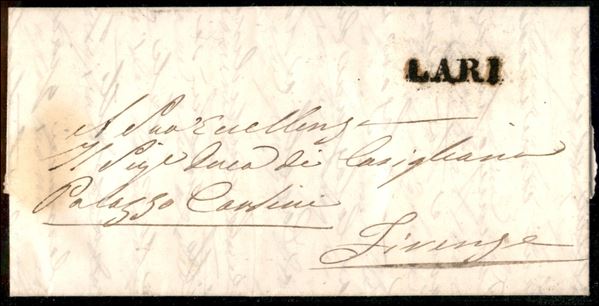 LARI
A Sua Eccellenza
Il Sigr Duca di Casigliano
Palazzo Corsini
Firenze